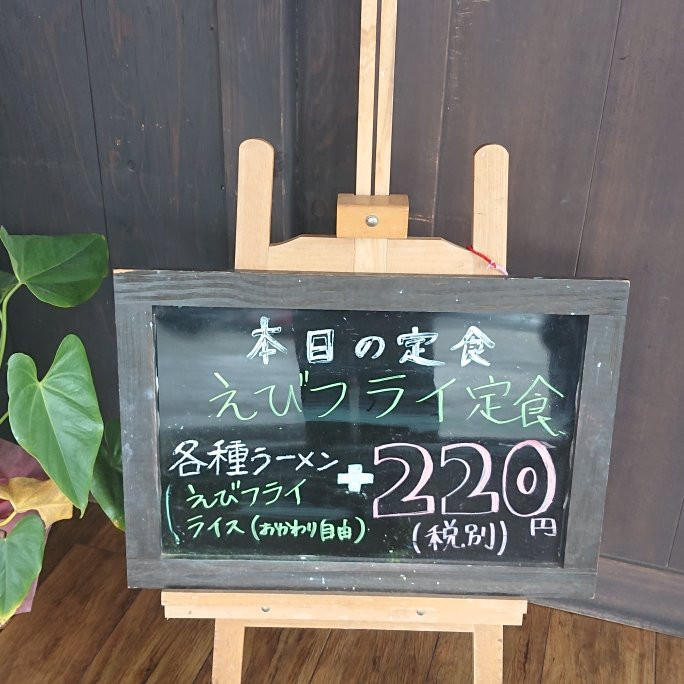 本日の定食
えびフライ定食
各種ラーメン + 220円
えびフライ
ライス(おかわり自由) (税別)